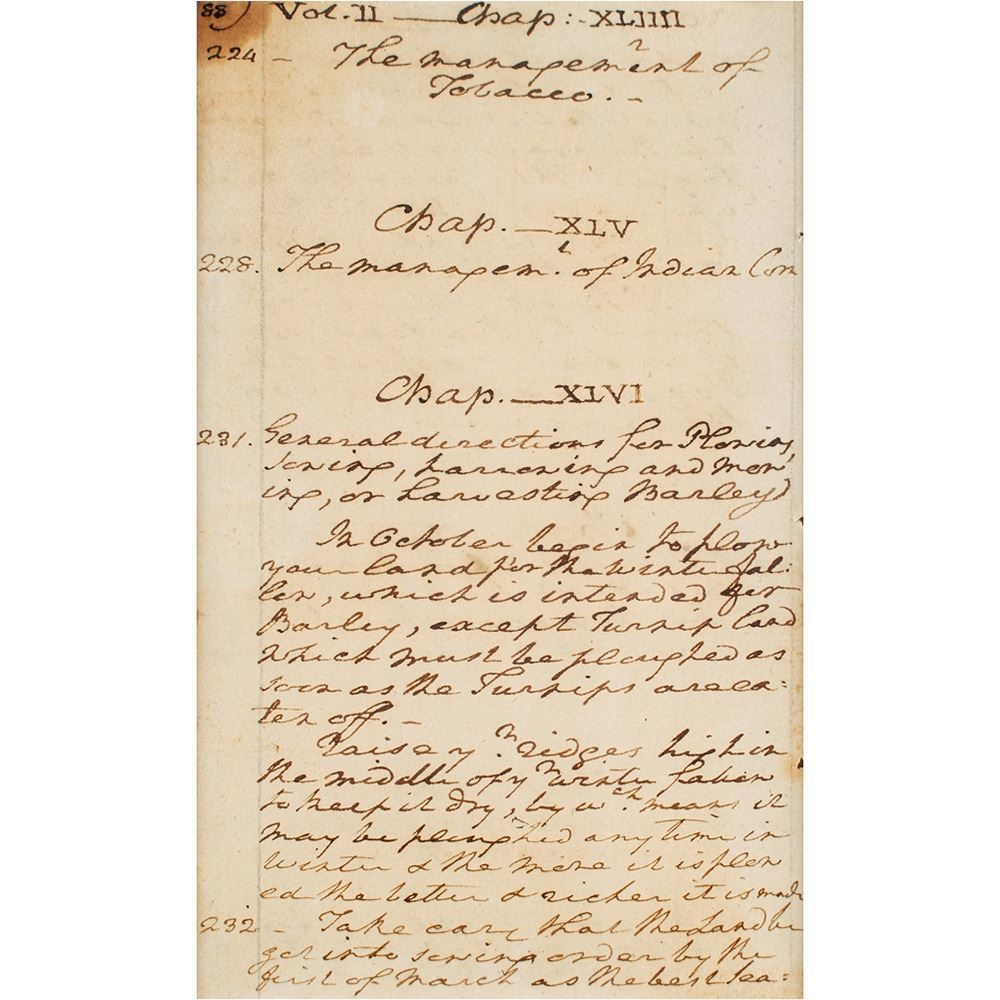 88) Vol. II — Chap: - XLIIII
224 - The managem.r int of
Tobacco. -
Chap. — XLV
228. The managem.t of Indian Corn
Chap. — XLVI
231. General directions for Plowing,
sowing, harrowing and mow
ing, or harvesting Barley
In October begin to plow
your land for the winter fal:
low, which is intended for
Barley, except Turnip land
which must be ploughed as
soon as the Turnips are ea:
ten off. -
Raise y.r ridges high in
the middle of y.r winter fallow
to keep it dry, by w.ch means it
may be ploughed any time in
winter & the more it is plow
ed the better & richer it is made
232 - Take care that the Land be
got into sowing order by the
first of March as the best sea: